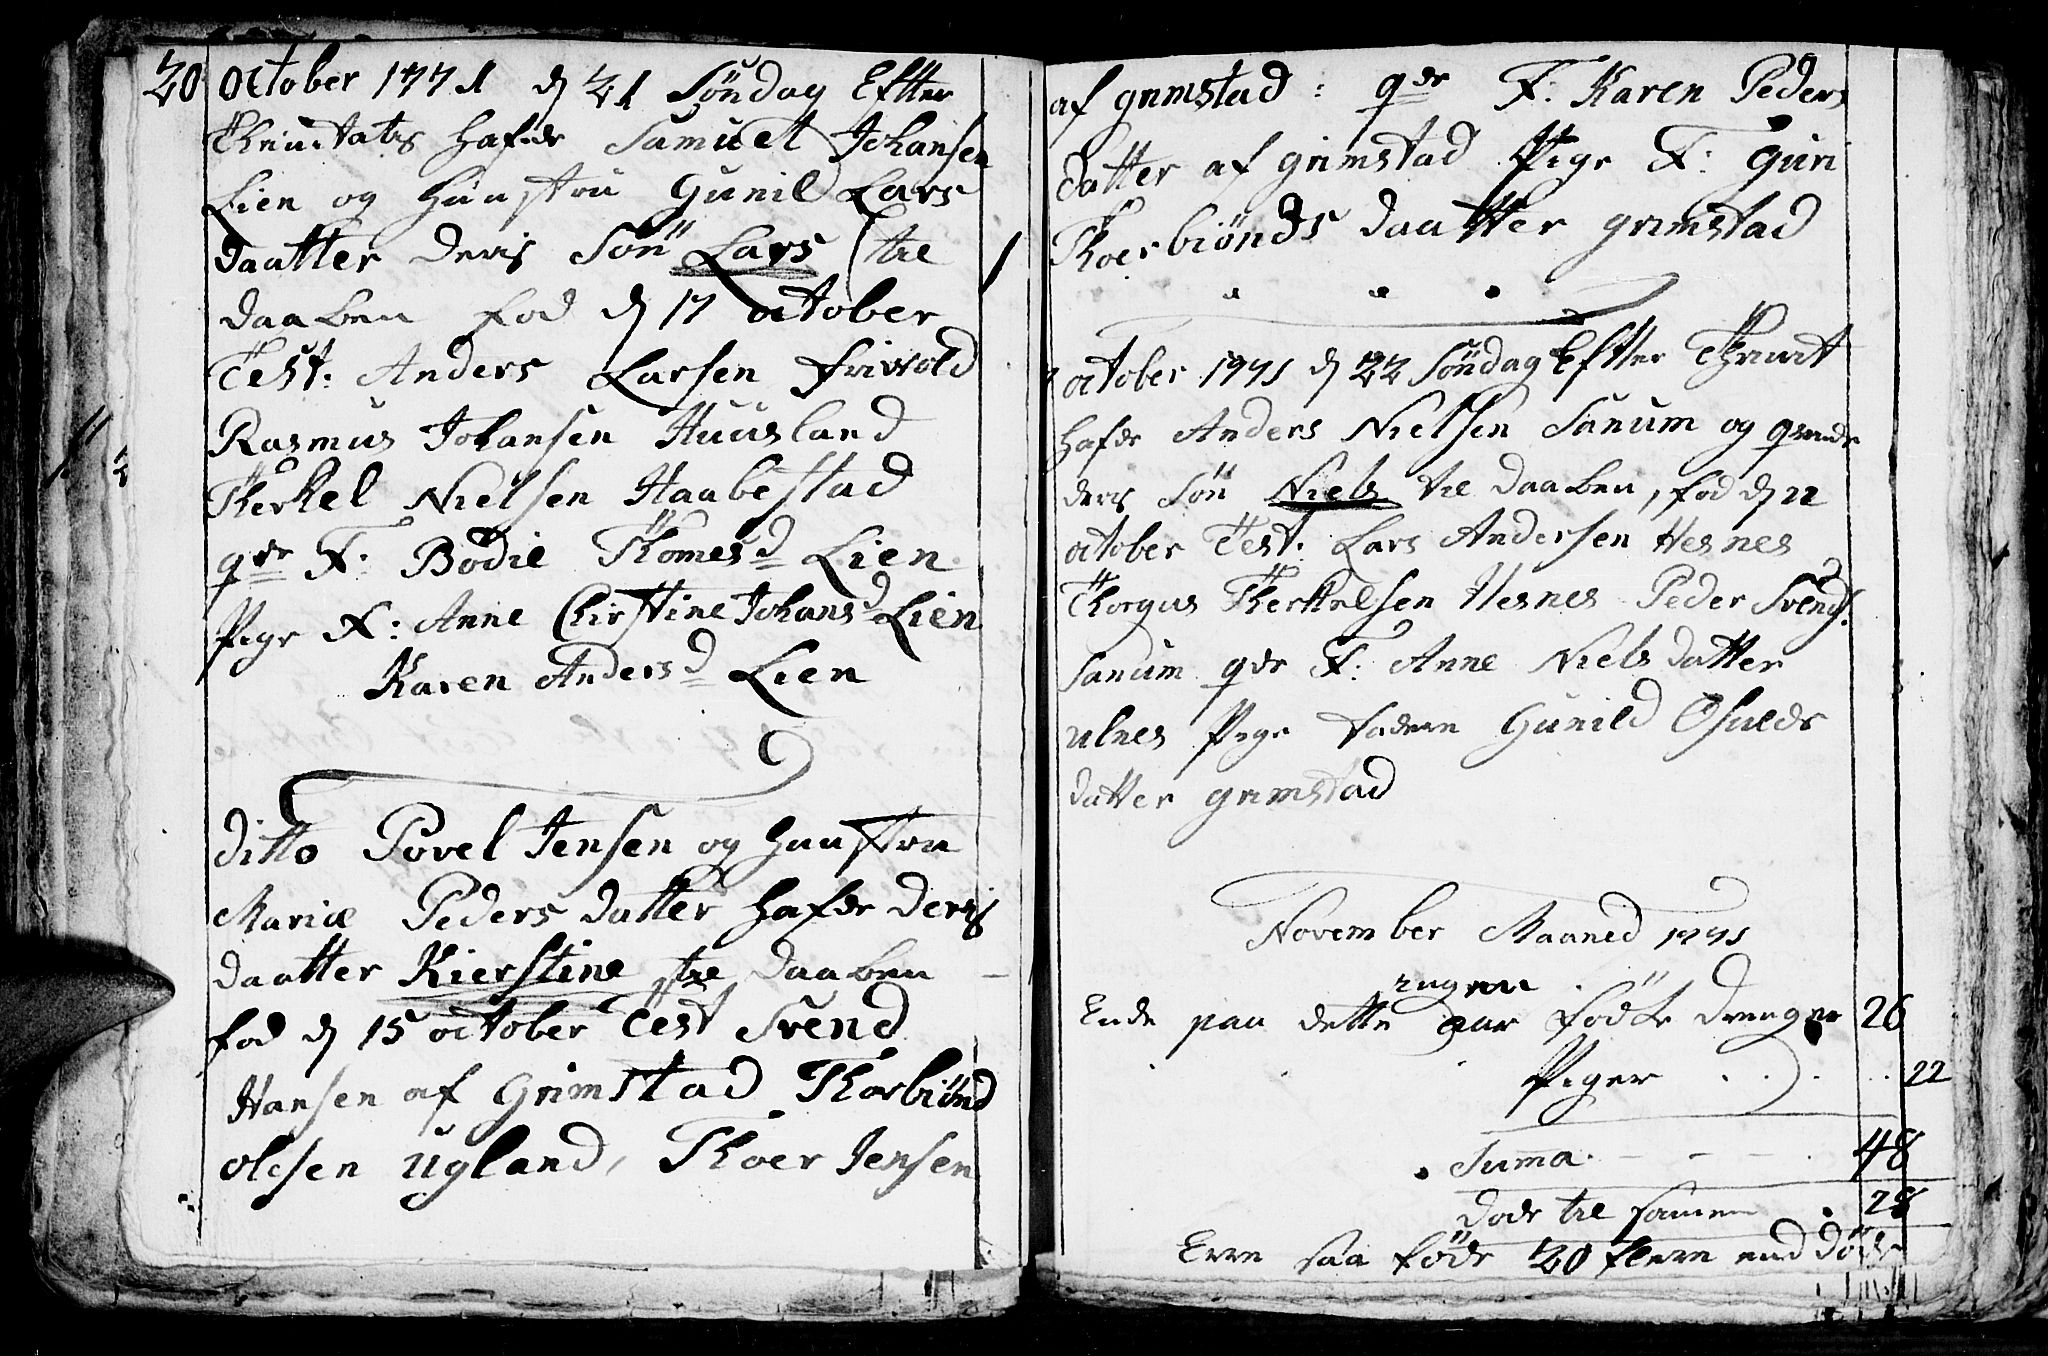 20 october 1771 d 21 Söndag Efter
Thrinitatis hafde Samuel Johansen
Lien og Hustru Gunild Lars
daatter deris Søn Lars til 1
daaben fød d 17 october
Test: Anders Larsen Frivold
Rasmus Johansen Huusland
Therkel Nielsen Haabestad
qde F: Bodil Thomesd Lien
Pige F: Anne Chirstine Johansd Lien
Karen Andersd Lien
ditto Povel Jensen og Hustru
Mariæ Peders datter hafde deris
daatter Kierstine til daaben –
fød d 15 october Test Svend
Hansen af Grimstad Thorbiønd
olesen Ugland, Thoer Jensen
af grimstad: qde F: Karen Peders
datter af grimstad Pige F: Guri
Thoerbiønds daatter grimstad
october 1771 d 22 Söndag Efter Thrinit
hafde Anders Nielsen Sanum og qvinde
deris Søn Niels til daaben, fød d 22
october Test: Lars Andersen Hesnes
Thorgus Therkelsen Hesnes Peder Svends:
Sanum qde F: Anne Niels datter
ulnes Pige fadere Gunild Osulds
datter grimstad
November Maaned 1771
ingen
Ende paa dette aar fødte drenger 26
Piger . . . . . 22
Suma. – – – . 48
døde til samen . 28
Erre saa føde 20 flere end døde